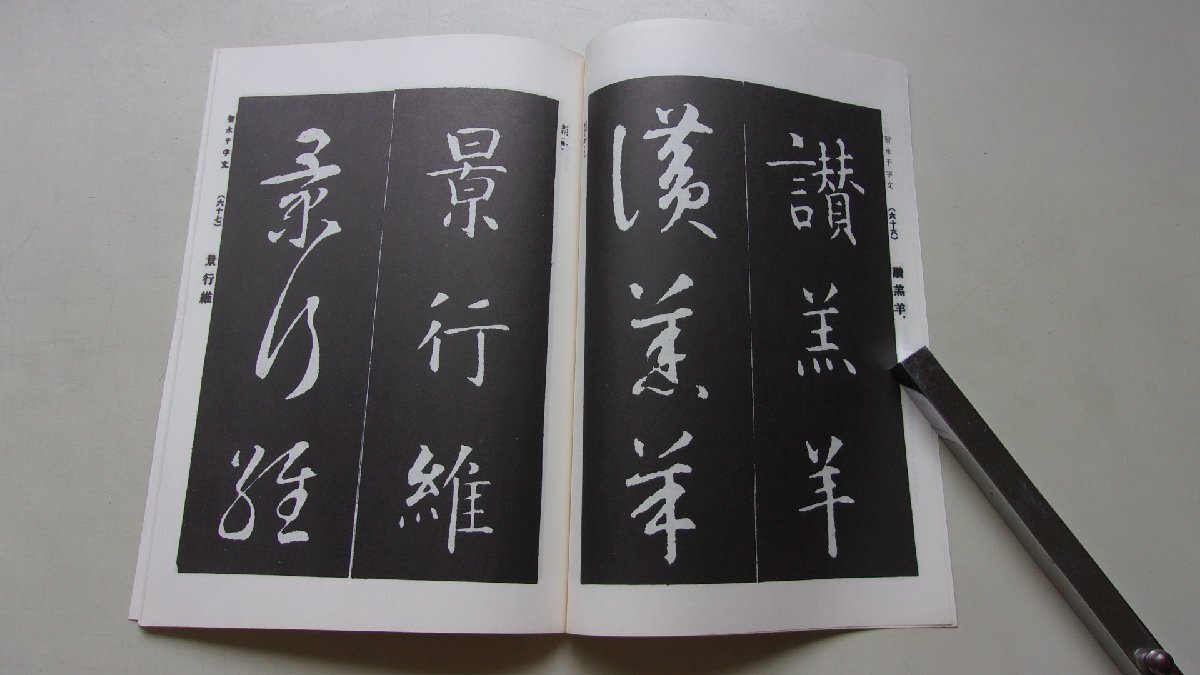 智永千字文
(六十六)
讃羔羊
讃羔羊
讃羔羊
景行維
景行維
智永千字文
(六十七)
景行維